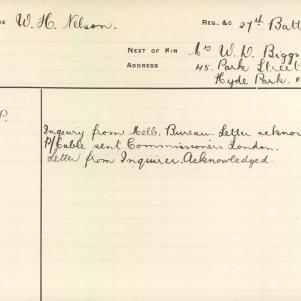 W. H. Nelson. REG., &C 27th Batt
NEXT OF KIN Mrs W. D. Biggs
ADDRESS 45. Park Street
Hyde Park.
P.
Inquiry from Melb. Bureau. Letter acknow
P/Cable sent Commissioners London.
Letter from Inquirer. Acknowledged.